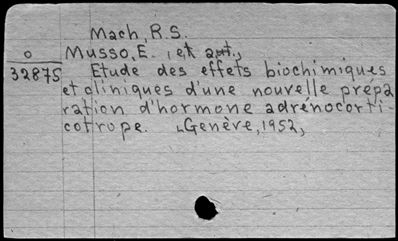 Mach, R.S.
o Musso, E., et aut.,
32875 Etude des effets biochimiques
et cliniques d'une nouvelle prépa
ration d'hormone adrénocorti-
cotrope. Genève, 1952,